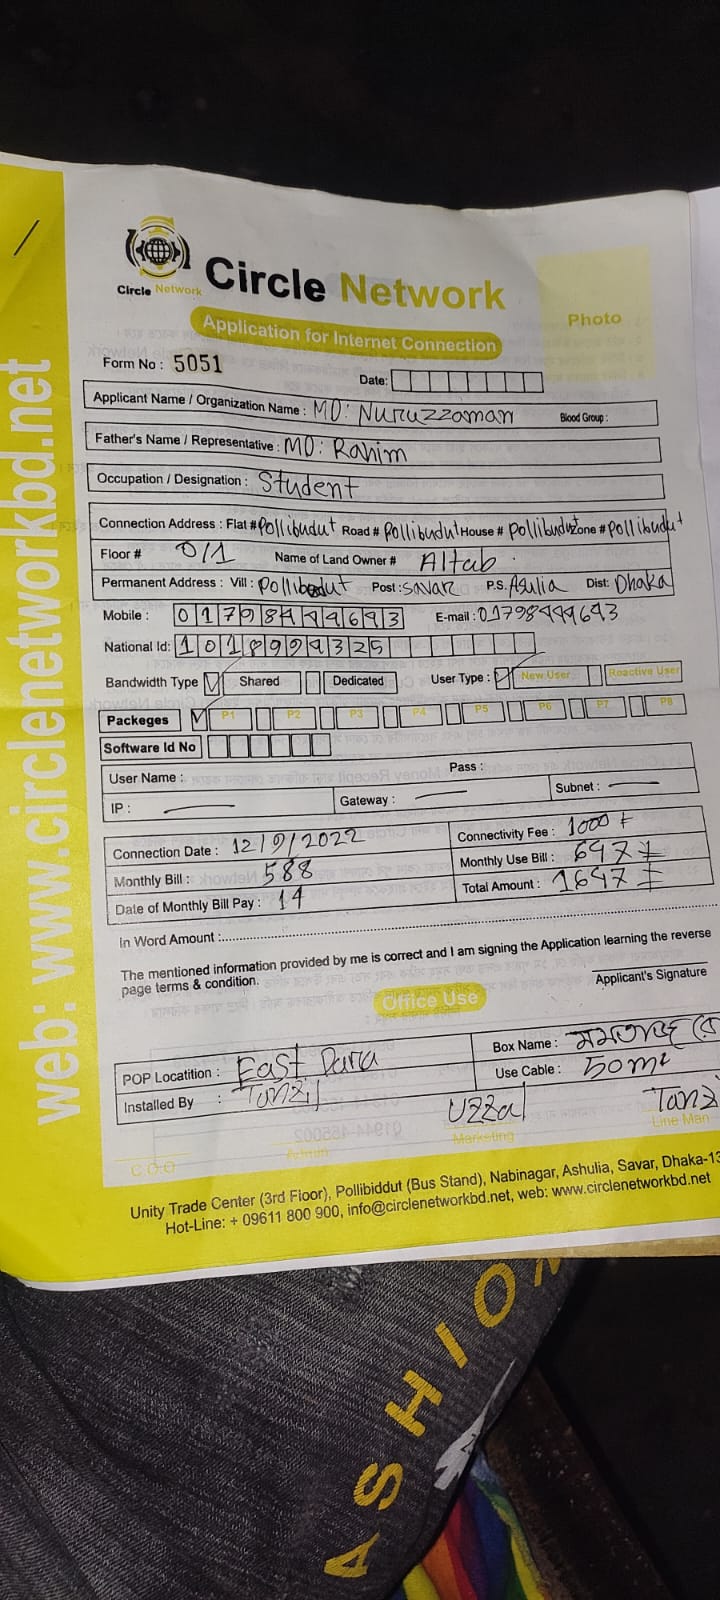 web: www.circlenetworkbd.net
Circle Network
Circle Network
Photo
Application for Internet Connection
Form No : 5051
Date:
Applicant Name / Organization Name : MD: Nuruzzaman Blood Group :
Father's Name / Representative : MD: Rahim
Occupation / Designation : Student
Connection Address : Flat # Pollibudut Road # Pollibudut House # Pollibudut Zone # Pollibudut
Floor # 0/1 Name of Land Owner # Altab
Permanent Address : Vill : Pollibedut Post : Savar P.S. Asulia Dist: Dhaka
Mobile : 01798444643 E-mail : 01798444643
National Id: 1018994325
Bandwidth Type Shared Dedicated User Type : New User Roactive User
Packeges P1 P2 P3 P4 P5 P6 P7 P8
Software Id No
User Name : Pass :
IP : Gateway : Subnet :
Connection Date : 12/9/2022 Connectivity Fee : 1000
Monthly Bill : 588 Monthly Use Bill : 647
Date of Monthly Bill Pay : 14 Total Amount : 1647
In Word Amount :
The mentioned information provided by me is correct and I am signing the Application learning the reverse
page terms & condition.
Applicant's Signature
Office Use
POP Locatition : East Para Box Name :
Installed By : Tanzil Use Cable : 50m
Uzzal Tanzi
C.O.O Admin Marketing Line Man
Unity Trade Center (3rd Floor), Pollibiddut (Bus Stand), Nabinagar, Ashulia, Savar, Dhaka-13
Hot-Line: + 09611 800 900, info@circlenetworkbd.net, web: www.circlenetworkbd.net
ASHION